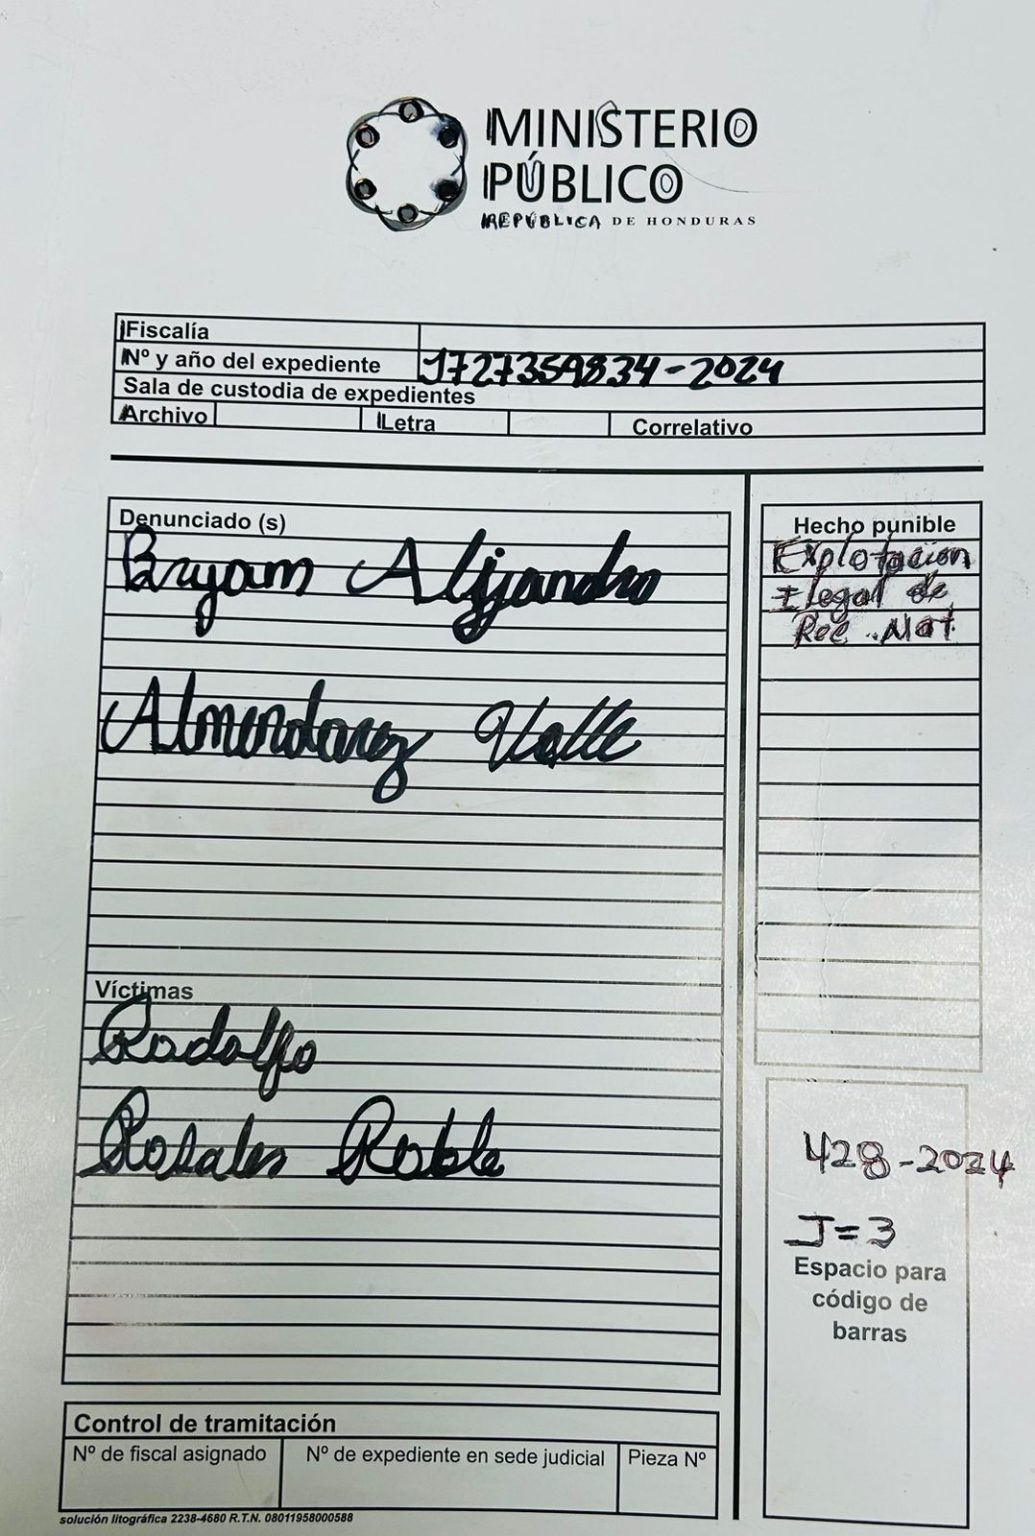 MINISTERIO
PÚBLICO
REPÚBLICA DE HONDURAS
Fiscalía
Nº y año del expediente 1727359834-2024
Sala de custodia de expedientes
Archivo Letra Correlativo
Denunciado (s)
Bryam Alijandro
Almendarez Valle
Víctimas
Rodolfo
Rosales Roble
Hecho punible
Explotacion
Ilegal de
Rec. Nat
428-2024
J=3
Espacio para
código de
barras
Control de tramitación
Nº de fiscal asignado Nº de expediente en sede judicial Pieza Nº
solución litográfica 2238-4680 R.T.N. 08011958000588